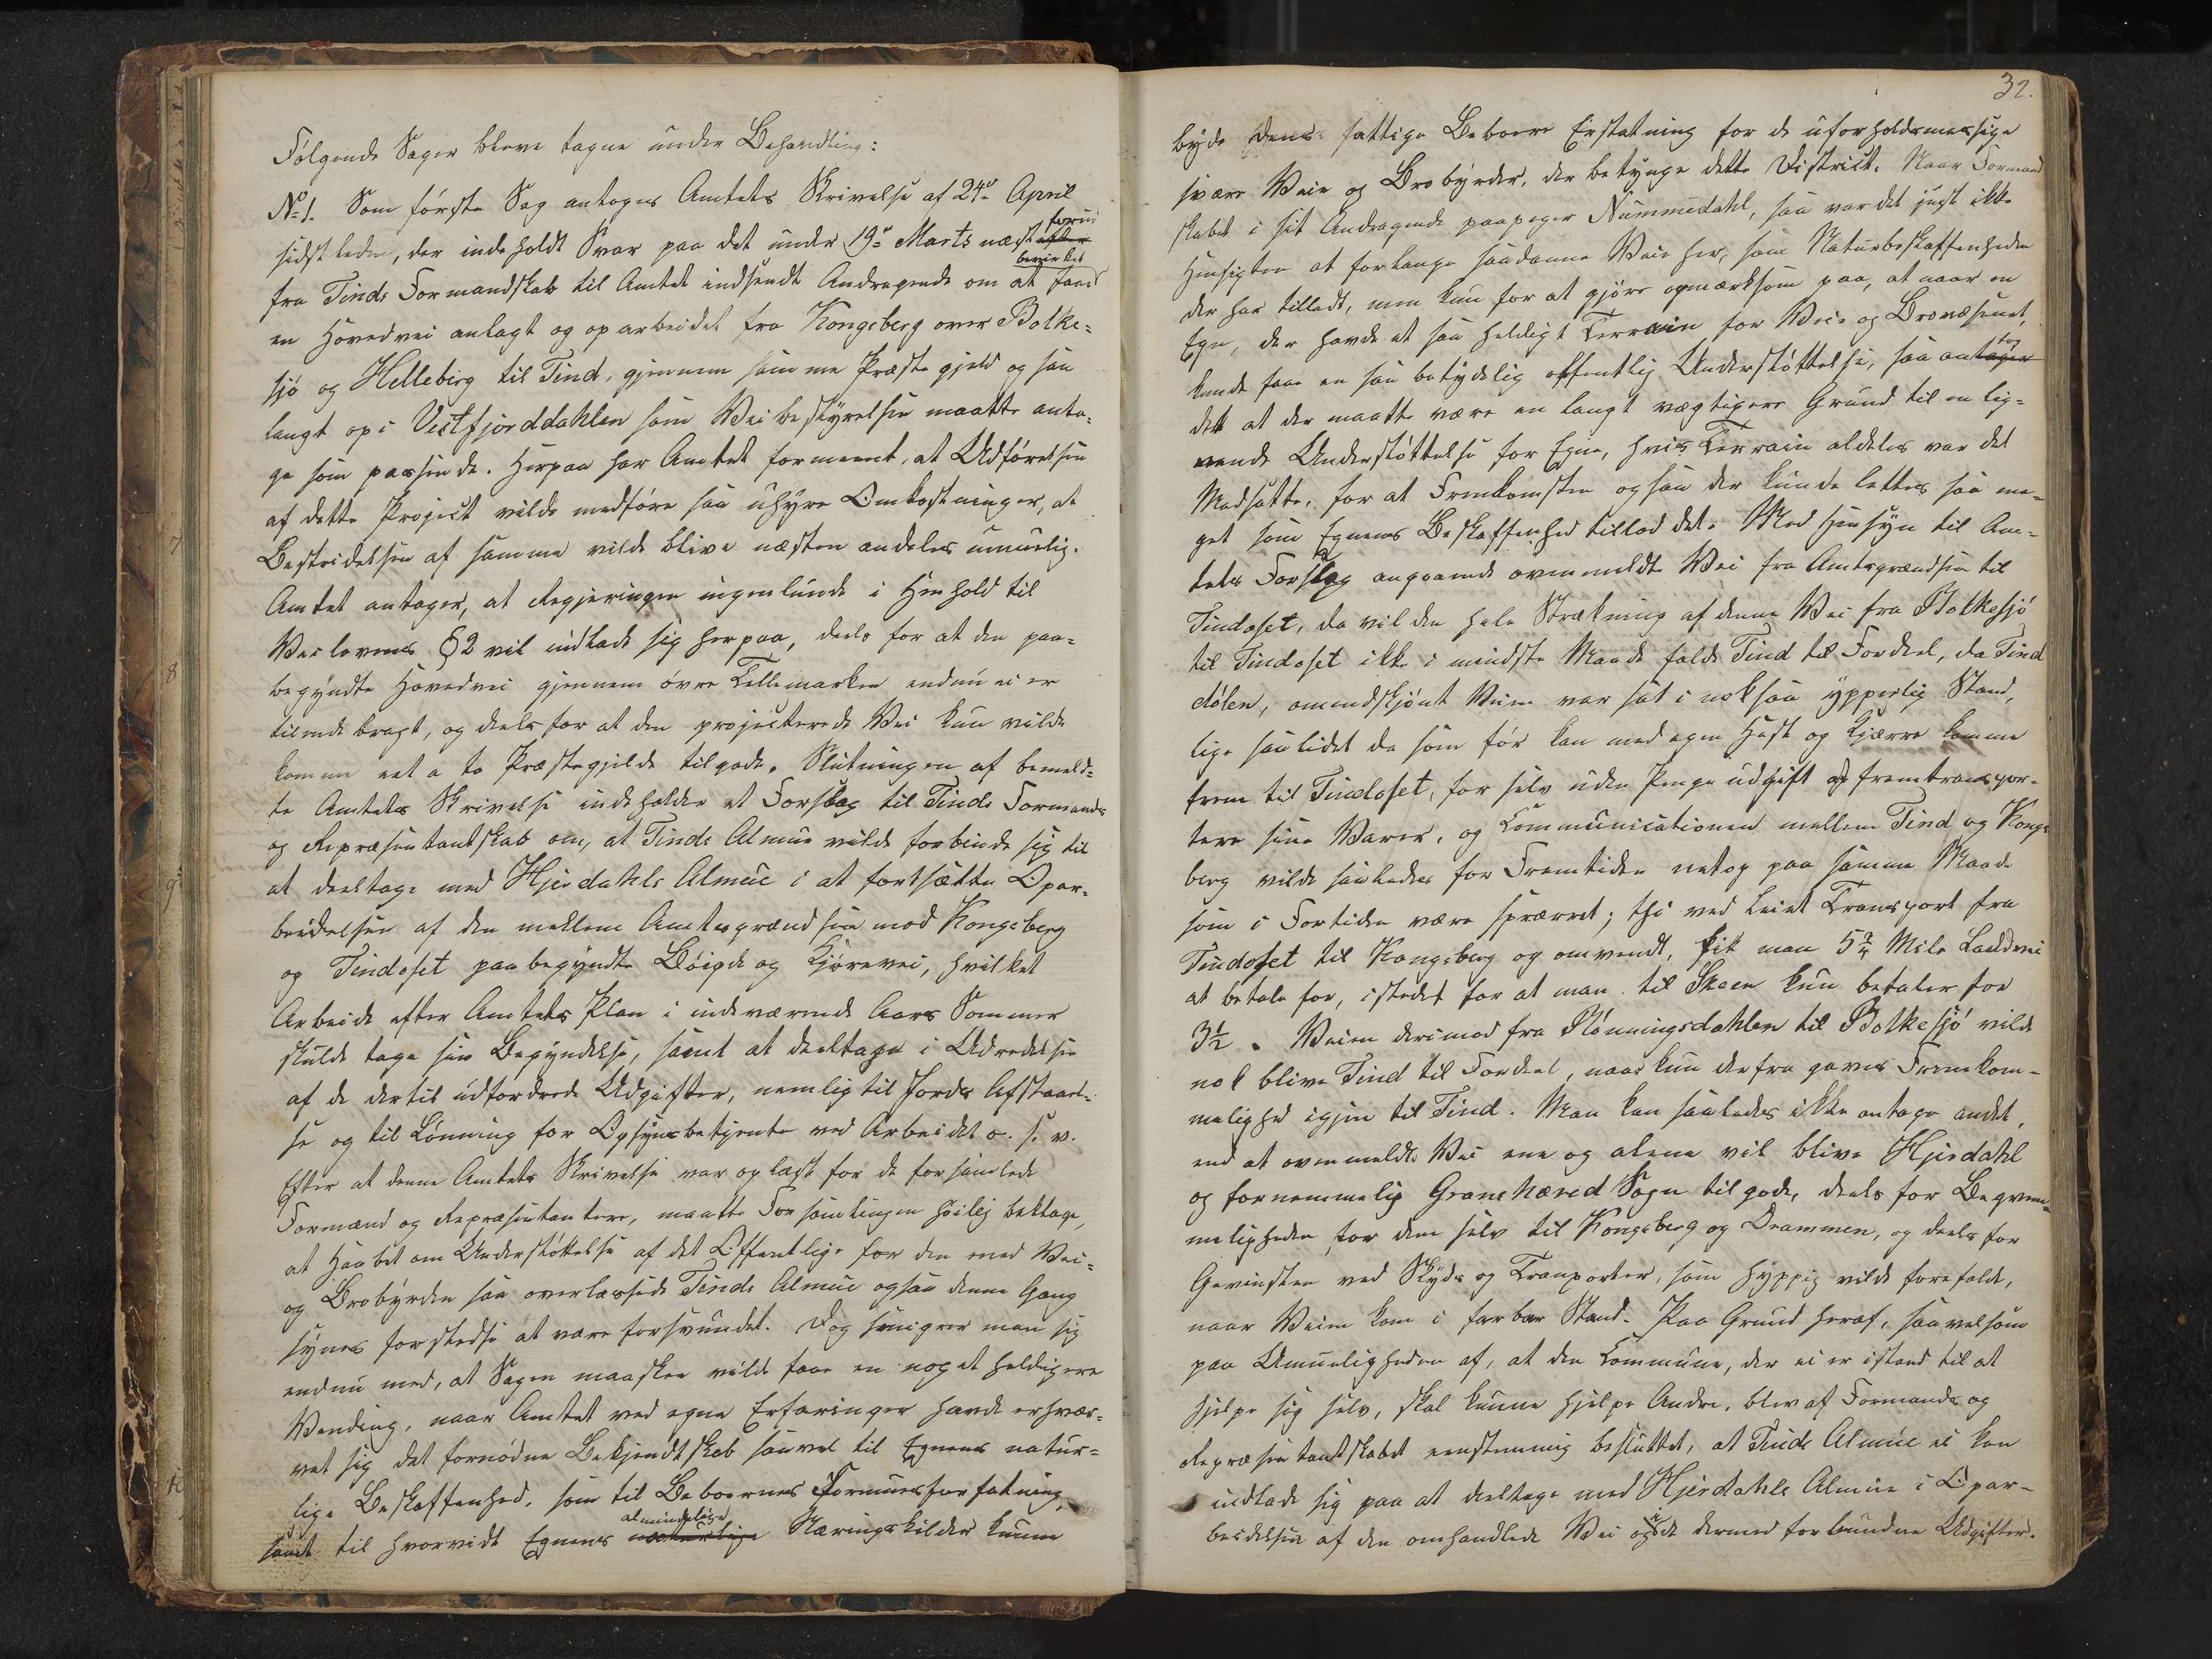 Følgende Sager bleve tagne under Behandling:
No 1. Som første Sag antoges Amtets Skrivelse af 24de April
sidstleden, der indeholdt Svar paa det under 19de Marts næst efter forud
fra Tinds Formandskab til Amtet indsendt Andragende om at faae bevirket
en Hovedvei anlagt og oparbeidet fra Kongsberg over Bolke-
sjø og Helleberg til Tind, gjennem samme Præstegjeld og saa
langt op i Vestfjorddahlen som Veibestyrelsen maatte anta-
ge som passende. Herpaa har Amtet formeent, at Udførelsen
af dette Project vilde medføre saa uhyre Omkostninger, at
Bestridelsen af samme vilde blive næsten andeles umuelig.
Amtet antager, at Regjeringen ingenlunde i Henhold til
Veilovens § 2 vil indlade sig herpaa, deels for at den paa-
begyndte Hovedvei gjennem øvre Tellemarken endnu ei er
tilendebragt, og deels for at den projecterede Vei kun vilde
komme eet a to Præstegjelde tilgode. Slutningen af bemeld-
te Amtets Skrivelse indeholder et Forslag til Tinds Formands
og Repræsentantskab om, at Tinds Almue vilde forbinde sig til
at deeltage med Hjerdahls Almue i at fortsætte Opar-
beidelsen af den mellem Amtsgrændsen mod Kongsberg
og Tindoset paabegyndte Bøigde og Kjørevei, hvilket
Arbeide efter Amtets Plan i indeværende Aars Sommer
skulde tage sin Begyndelse, samt at deeltage i Udredelsen
af de dertil udfordrede Udgifter, nemlig til Jords Afstaael-
se og til Lønning for Opsynsbetjente ved Arbeidet o. s. v.
Efter at denne Amtets Skrivelse var oplæst for de forsamlede
Formænd og Repræsentantere, maatte Forsamlingen høilig beklage,
at Haabet om Understøttelse af det Offentlige for den med Vei-
og Brobyrden saa overlæssede Tinds Almue ogsaa denne Gang
synes forstedse at være forsvundet. Dog smigrer man sig
endnu med, at Sagen maaskee vilde faae en noget heldigere
Vending, naar Amtet ved egne Erfaringer havde erhver-
vet sig det fornødne Bekjendtskab saavel til Egnens natur-
lige Beskaffenhed, som til Beboernes Formuesforfatning,
samt til hvorvidt Egnens naturlige almindelige Næringskilder kunne
32.
byde dens fattige Beboere Erstatning for de uforholdsmessige
svære Veie og Brobyrder, der betynge dette District. Naar Formand
skabet i sit Andragende paapeger Nummedahl, saa var det just ikke
Hensigten at forlange saadanne Veie her, som Naturbeskaffenheden
der har tilladt, men kun for at gjøre opmærksom paa, at naar en
Egn, der havde et saa heldigt Terrain for Veie og Brovæsenet,
kunde faae en saa betydelig offentlig Understøttelse, saa antager tog
det at der maatte være en langt vægtigere Grund til en lig-
nende Understøttelse for Egne, hvis Terrain aldeles var det
Modsatte, for at Fremkomsten ogsaa der kunde lettes saa me-
get som Egnens Beskaffenhed tillod det. Med Hensyn til Am-
tets Forslag angaaende ovenmeldte Vei fra Amtsgrændsen til
Tindoset, da vil den hele Strækning af denne Vei fra Bolkesjø
til Tindoset ikke i mindste Maade falde Tind til Fordeel, da Tind
dølen, omendskjønt Veien var sat i nok saa ypperlig Stand,
lige saa lidet da som før kan med egen Hest og Kjærre komme
frem til Tindoset, for selv uden Pengeudgift at fremtranspor-
tere sine Varer, og Communicationen mellem Tind og Kongs
berg vilde saaledes for Fremtiden netop paa samme Maade
som i Fortiden være spærret; thi ved leiet Transport fra
Tindoset til Kongsberg og omvendt, fik man 5¾ Mile Landvei
at betale for, istedet for at man til Skeen kun betaler for
3½. Veien derimod fra Rønningsdahlen til Bolkesjø vilde
nok blive Tind til Fordeel, naar kun derfra gaves Fremkom-
melighed igjen til Tind. Man kan saaledes ikke antage andet,
end at ovenmeldte Vei ene og alene vil blive Hjerdahl
og fornemmelig Granehæred Sogn tilgode, deels for Beqvem-
meligheden for dem selv til Kongsberg og Drammen, og deels for
Gevinsten ved Skyds og Tranporter, som hyppig vilde forefalde,
naar Veien kom i farbar Stand. Paa Grund heraf, saavelsom
paa Umueligheden af, at den Commune, der ei er istand til at
hjelpe sig selv, skal kunne hjelpe Andre, blev af Formands og
Repræsentantskabet eenstemmig besluttet, at Tinds Almue ei kan
indlade sig paa at deeltage med Hjerdahls Almue i Opar-
beidelsen af den omhandlede Vei og de dermed forbundne Udgifter.